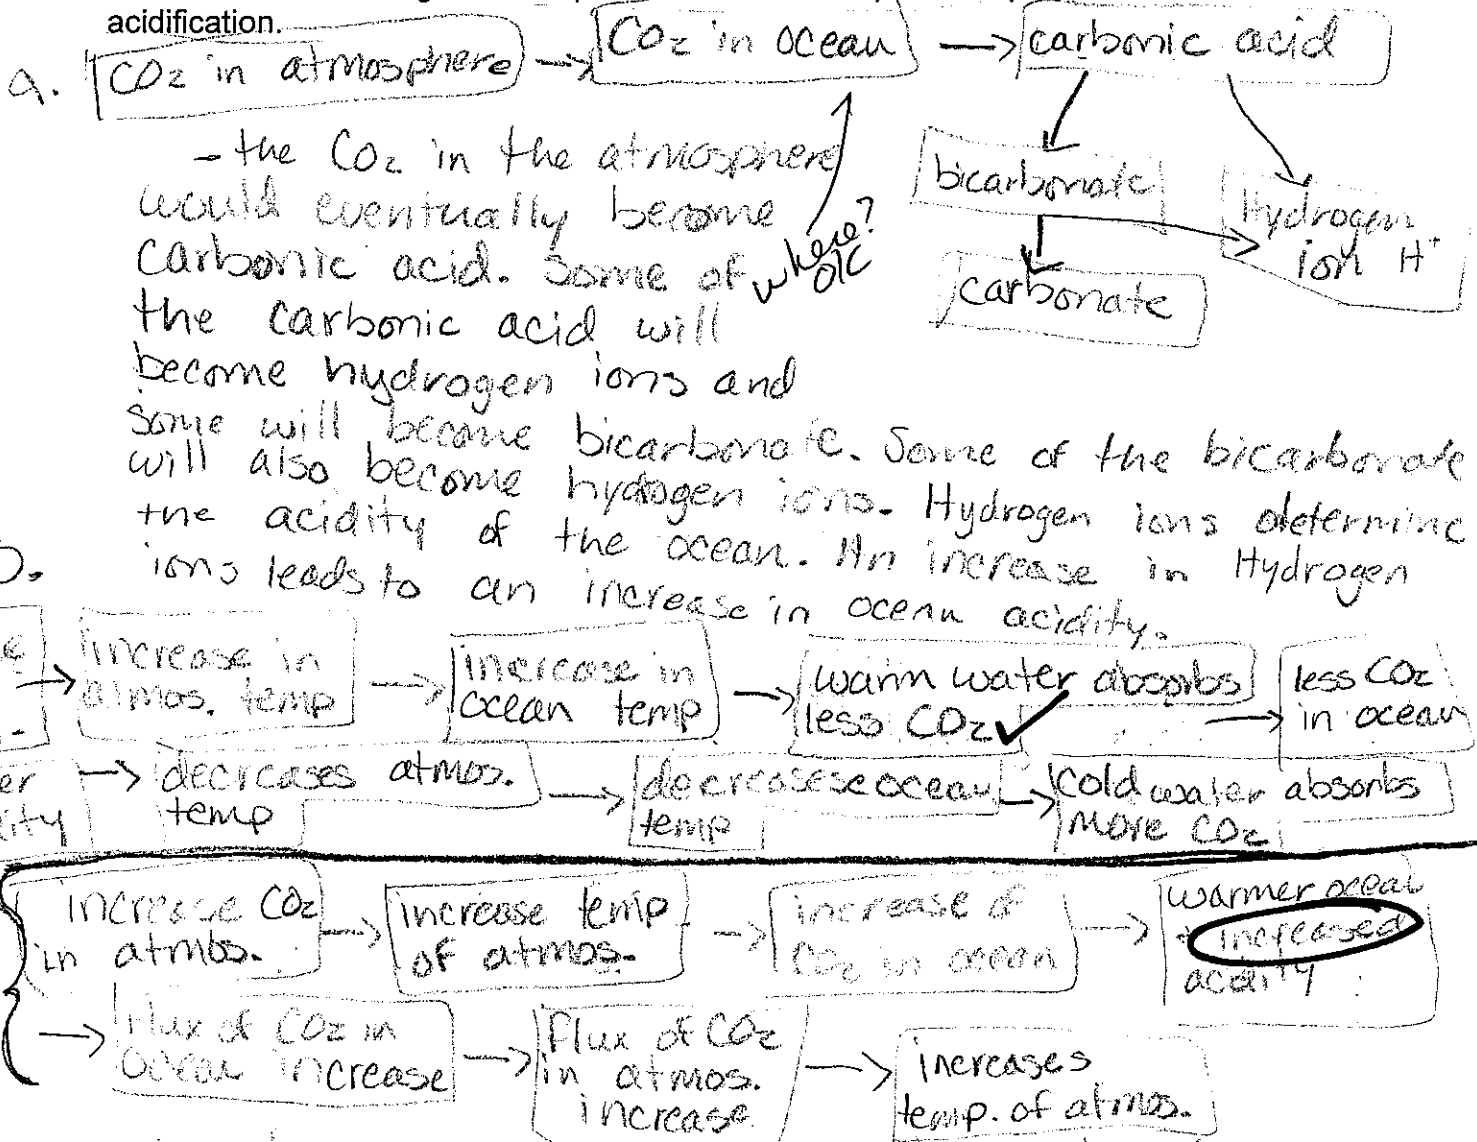 acidification.
a. CO2 in atmosphere → CO2 in ocean → carbonic acid
- the CO2 in the atmosphere
bicarbonate
would eventually become
Hydrogen
ion H+
where?
ok
carbonic acid. Some of
carbonate
the carbonic acid will
become hydrogen ions and
some will become bicarbonate. Some of the bicarbonate
will also become hydogen ions. Hydrogen ions determine
the acidity of the ocean. An increase in Hydrogen
ions leads to an increase in ocean acidity.
→ increase in
atmos. temp → increase in
ocean temp → warm water absorbs
less CO2 ✓ → less CO2
in ocean
→ decreases atmos.
temp → decreases ocean
temp → cold water absorbs
more CO2
increase CO2
in atmos. → increase temp
of atmos. → increase of
CO2 in ocean → warmer ocean
+ increased
acidity
→ flux of CO2 in
ocean increase → flux of CO2
in atmos.
increase → increases
temp. of atmos.